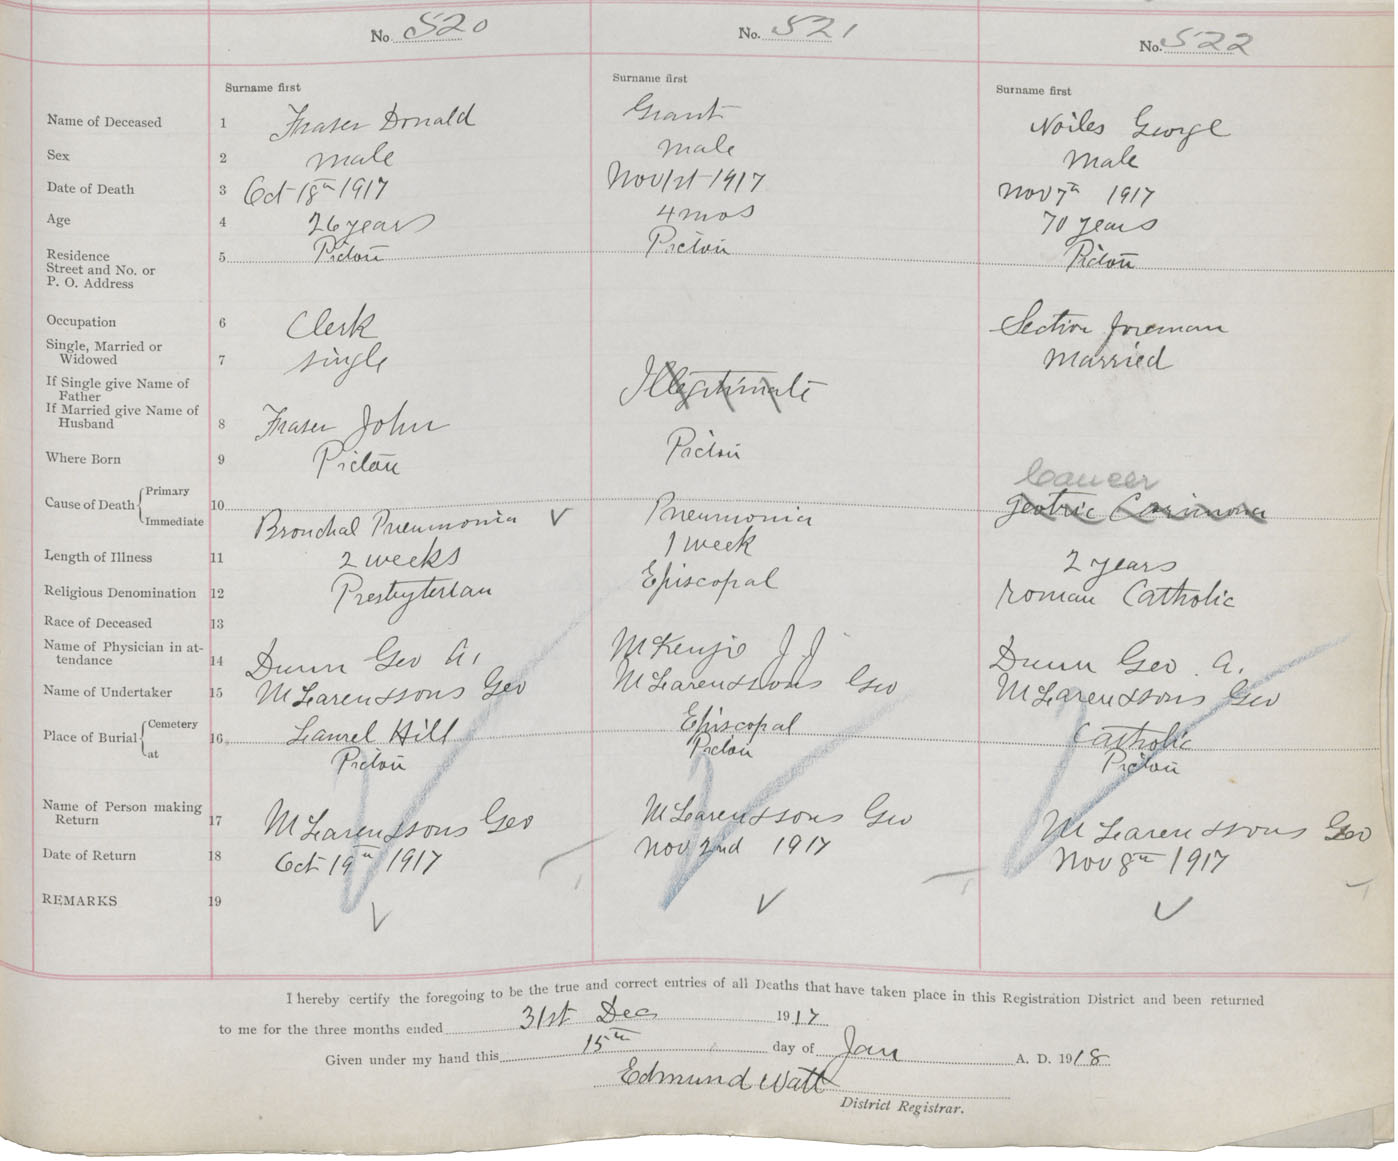 No. 520 No. 521 No. 522
Surname first Surname first Surname first
Name of Deceased 1 Fraser Donald Grant Noiles George
Sex 2 male male male
Date of Death 3 Oct 18th 1917 Nov 1st 1917 Nov 7th 1917
Age 4 26 years 4 mos 70 years
Residence
Street and No. or
P. O. Address 5 Pictou Pictou Pictou
Occupation 6 Clerk Section foreman
Single, Married or
Widowed 7 single married
If Single give Name of
Father Illegitimate
If Married give Name of
Husband 8 Fraser John
Where Born 9 Pictou Pictou
Cancer
Cause of Death Primary
Immediate 10 Bronchal Pneumonia Pneumonia Geotric Carinoma
Length of Illness 11 2 weeks 1 week 2 years
Religious Denomination 12 Presbyterian Episcopal roman Catholic
Race of Deceased 13
Name of Physician in at-
tendance 14 Dunn Geo A. McKenzie J J Dunn Geo A.
Name of Undertaker 15 McLaren & sons Geo McLaren & sons Geo McLaren & sons Geo
Place of Burial Cemetery
at 16 Laurel Hill Episcopal Catholic
Pictou Pictou Pictou
Name of Person making
Return 17 McLaren & sons Geo McLaren & sons Geo McLaren & sons Geo
Date of Return 18 Oct 19th 1917 Nov 2nd 1917 Nov 8th 1917
REMARKS 19
I hereby certify the foregoing to be the true and correct entries of all Deaths that have taken place in this Registration District and been returned
to me for the three months ended 31st Dec 1917
Given under my hand this 15th day of Jan A. D. 1918
Edmund Watt
District Registrar.